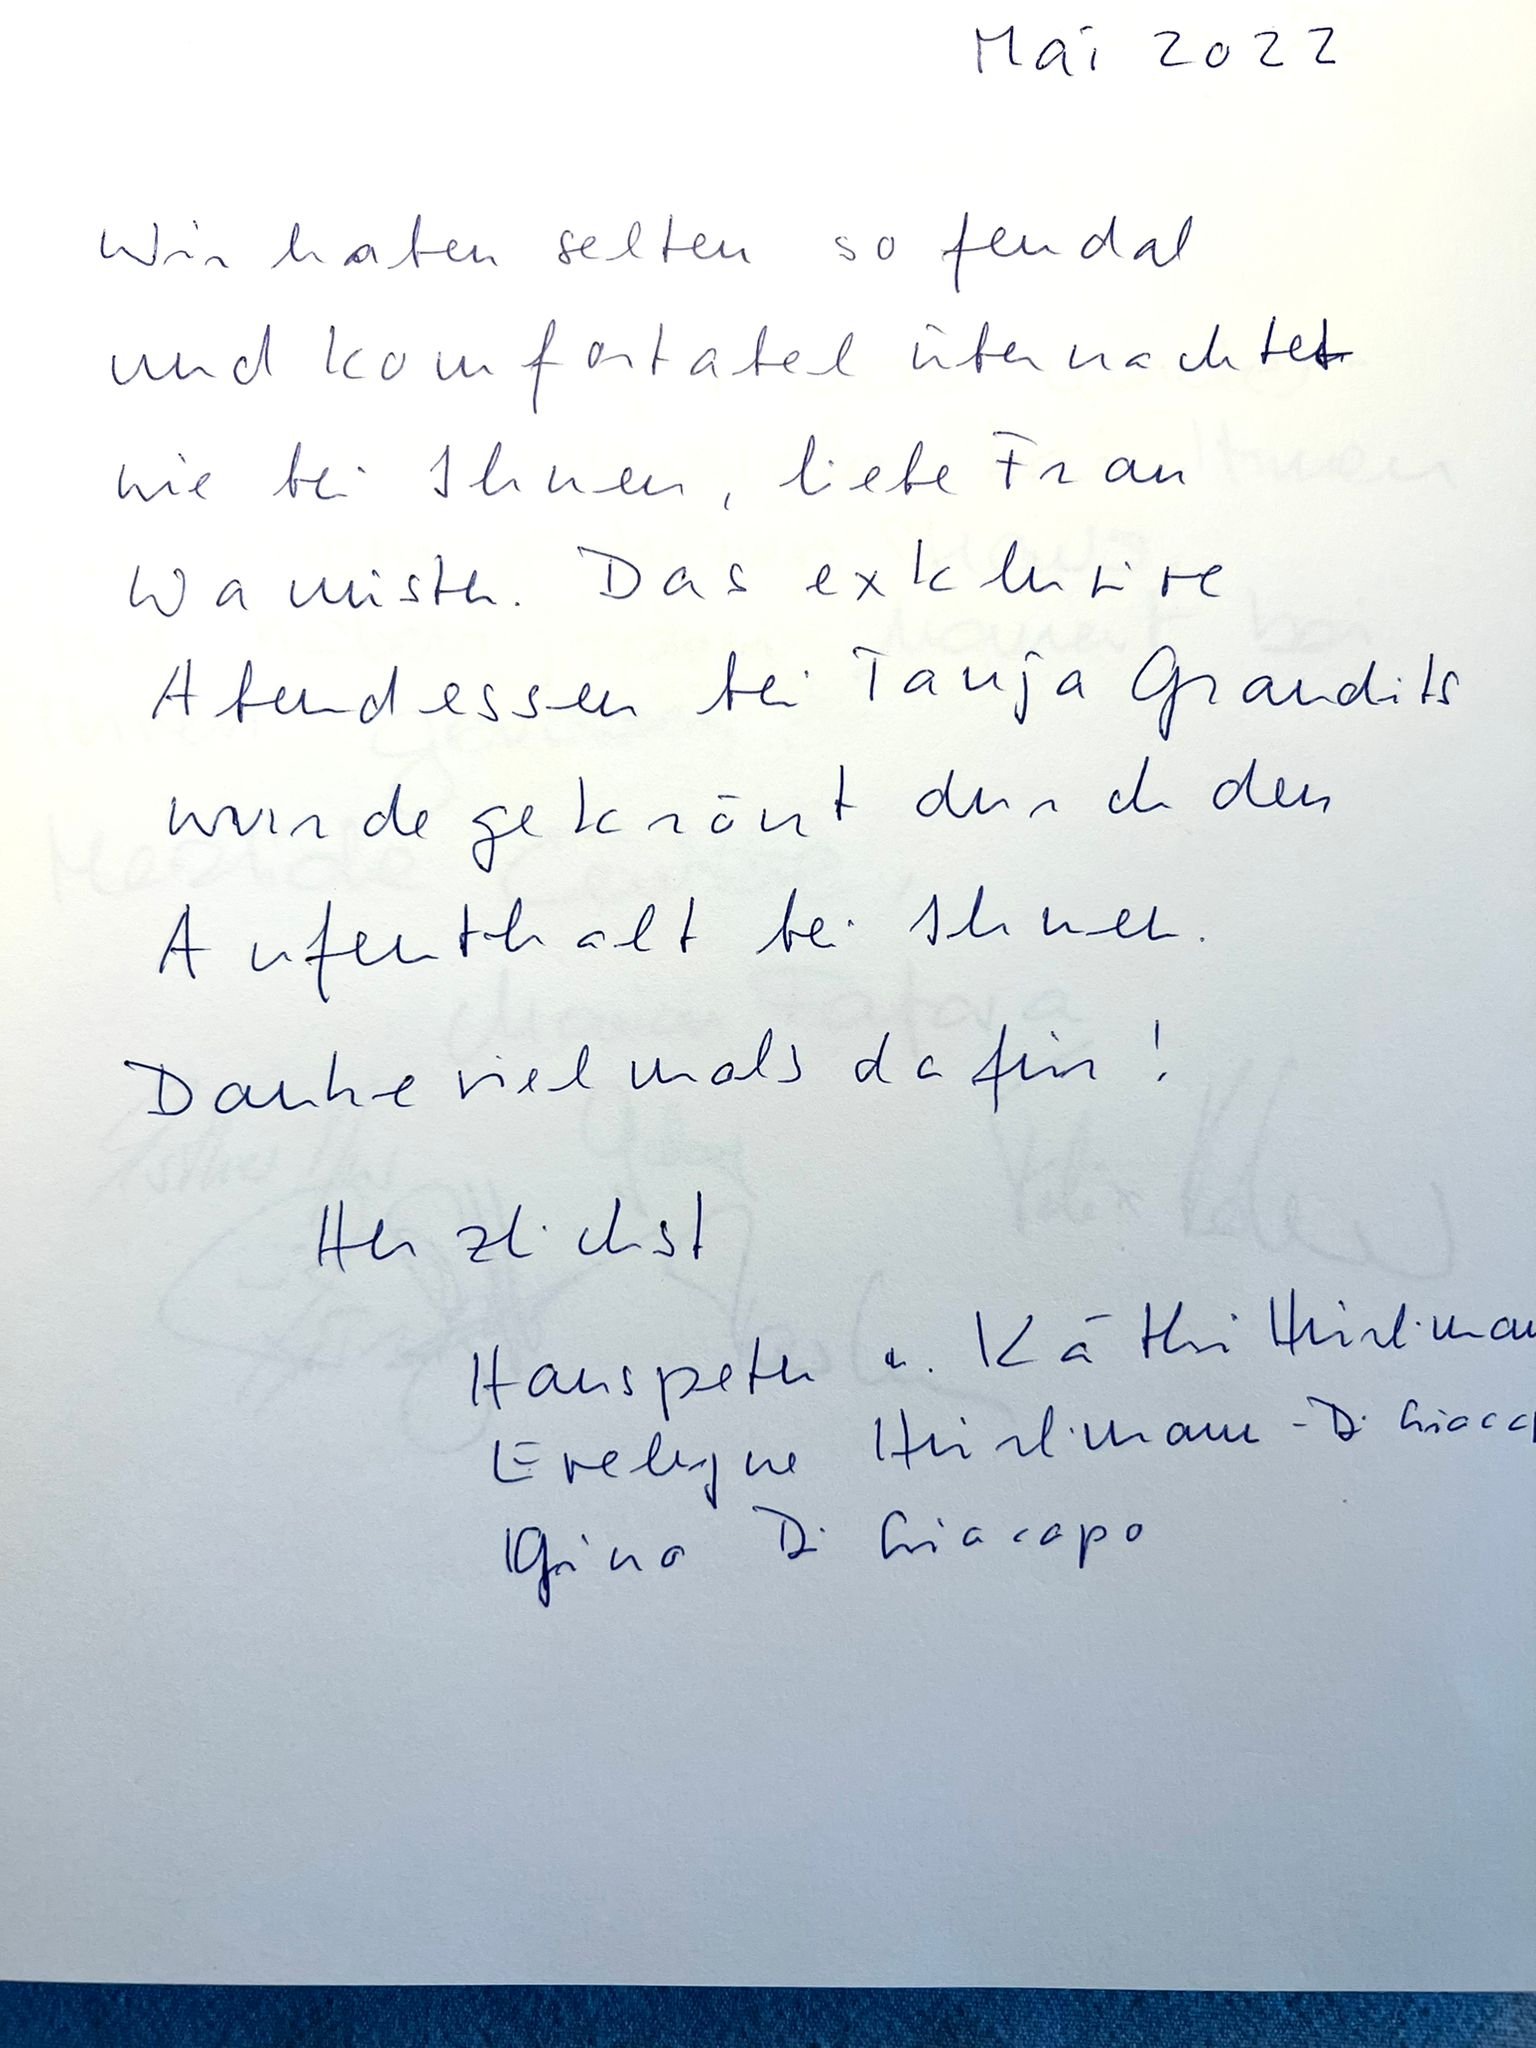 Mai 2022
Wir haben selten so feudal
und komfortabel übernachtet
wie bei Ihnen, liebe Frau
Das exklusive
Abendessen bei Tanja Grandits
wurde gekrönt durch den
Aufenthalt bei Ihnen.
Danke vielmals dafür!
Herzlichst
Hanspeter u. Käthi
Evelyne
Gina Di